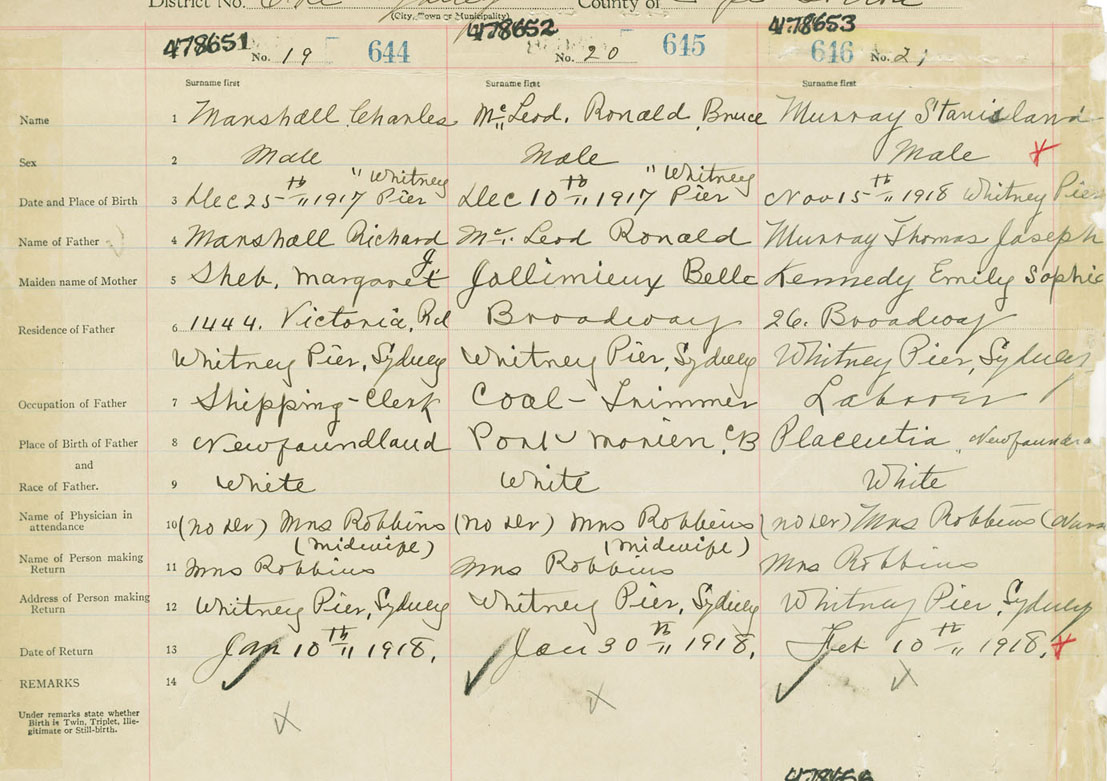 District No. County of
(City, Town or Municipality)
478651 478652 478653
No. 19 644 No. 20 645 646 No. 21
Surname first Surname first Surname first
Name 1 Marshall Charles McLeod, Ronald Bruce Murray Stanisland
Sex 2 Male Male Male
Date and Place of Birth 3 Dec 25th 1917 " Whitney Pier Dec 10th 1917 " Whitney Pier Nov 15th 1918 Whitney Pier
Name of Father 4 Marshall Richard Mc. Leod Ronald Murray Thomas Joseph
Maiden name of Mother 5 Margaret J Jollimieux Belle Kennedy Emily Sophie
Residence of Father 6 1444. Victoria, Rd Broadway 26. Broadway
Whitney Pier, Sydney Whitney Pier, Sydney Whitney Pier, Sydney
Occupation of Father 7 Shipping-Clerk Coal-Trimmer Labroer
Place of Birth of Father 8 Newfoundland Port Morien, CB Placentia,
and
Race of Father. 9 White White White
Name of Physician in attendance 10 (no Dr) Mrs Robbins (no Dr) Mrs Robbins (no Dr) Mrs Robbins
(Midwife) (Midwife)
Name of Person making Return 11 Mrs Robbins Mrs Robbins Mrs Robbins
Address of Person making Return 12 Whitney Pier, Sydney Whitney Pier, Sydney Whitney Pier, Sydney
Date of Return 13 Jan 10th 1918. Jan 30th 1918. Feb 10th 1918.
REMARKS 14
Under remarks state whether
Birth is Twin, Triplet, Ille-
gitimate or Still-birth.